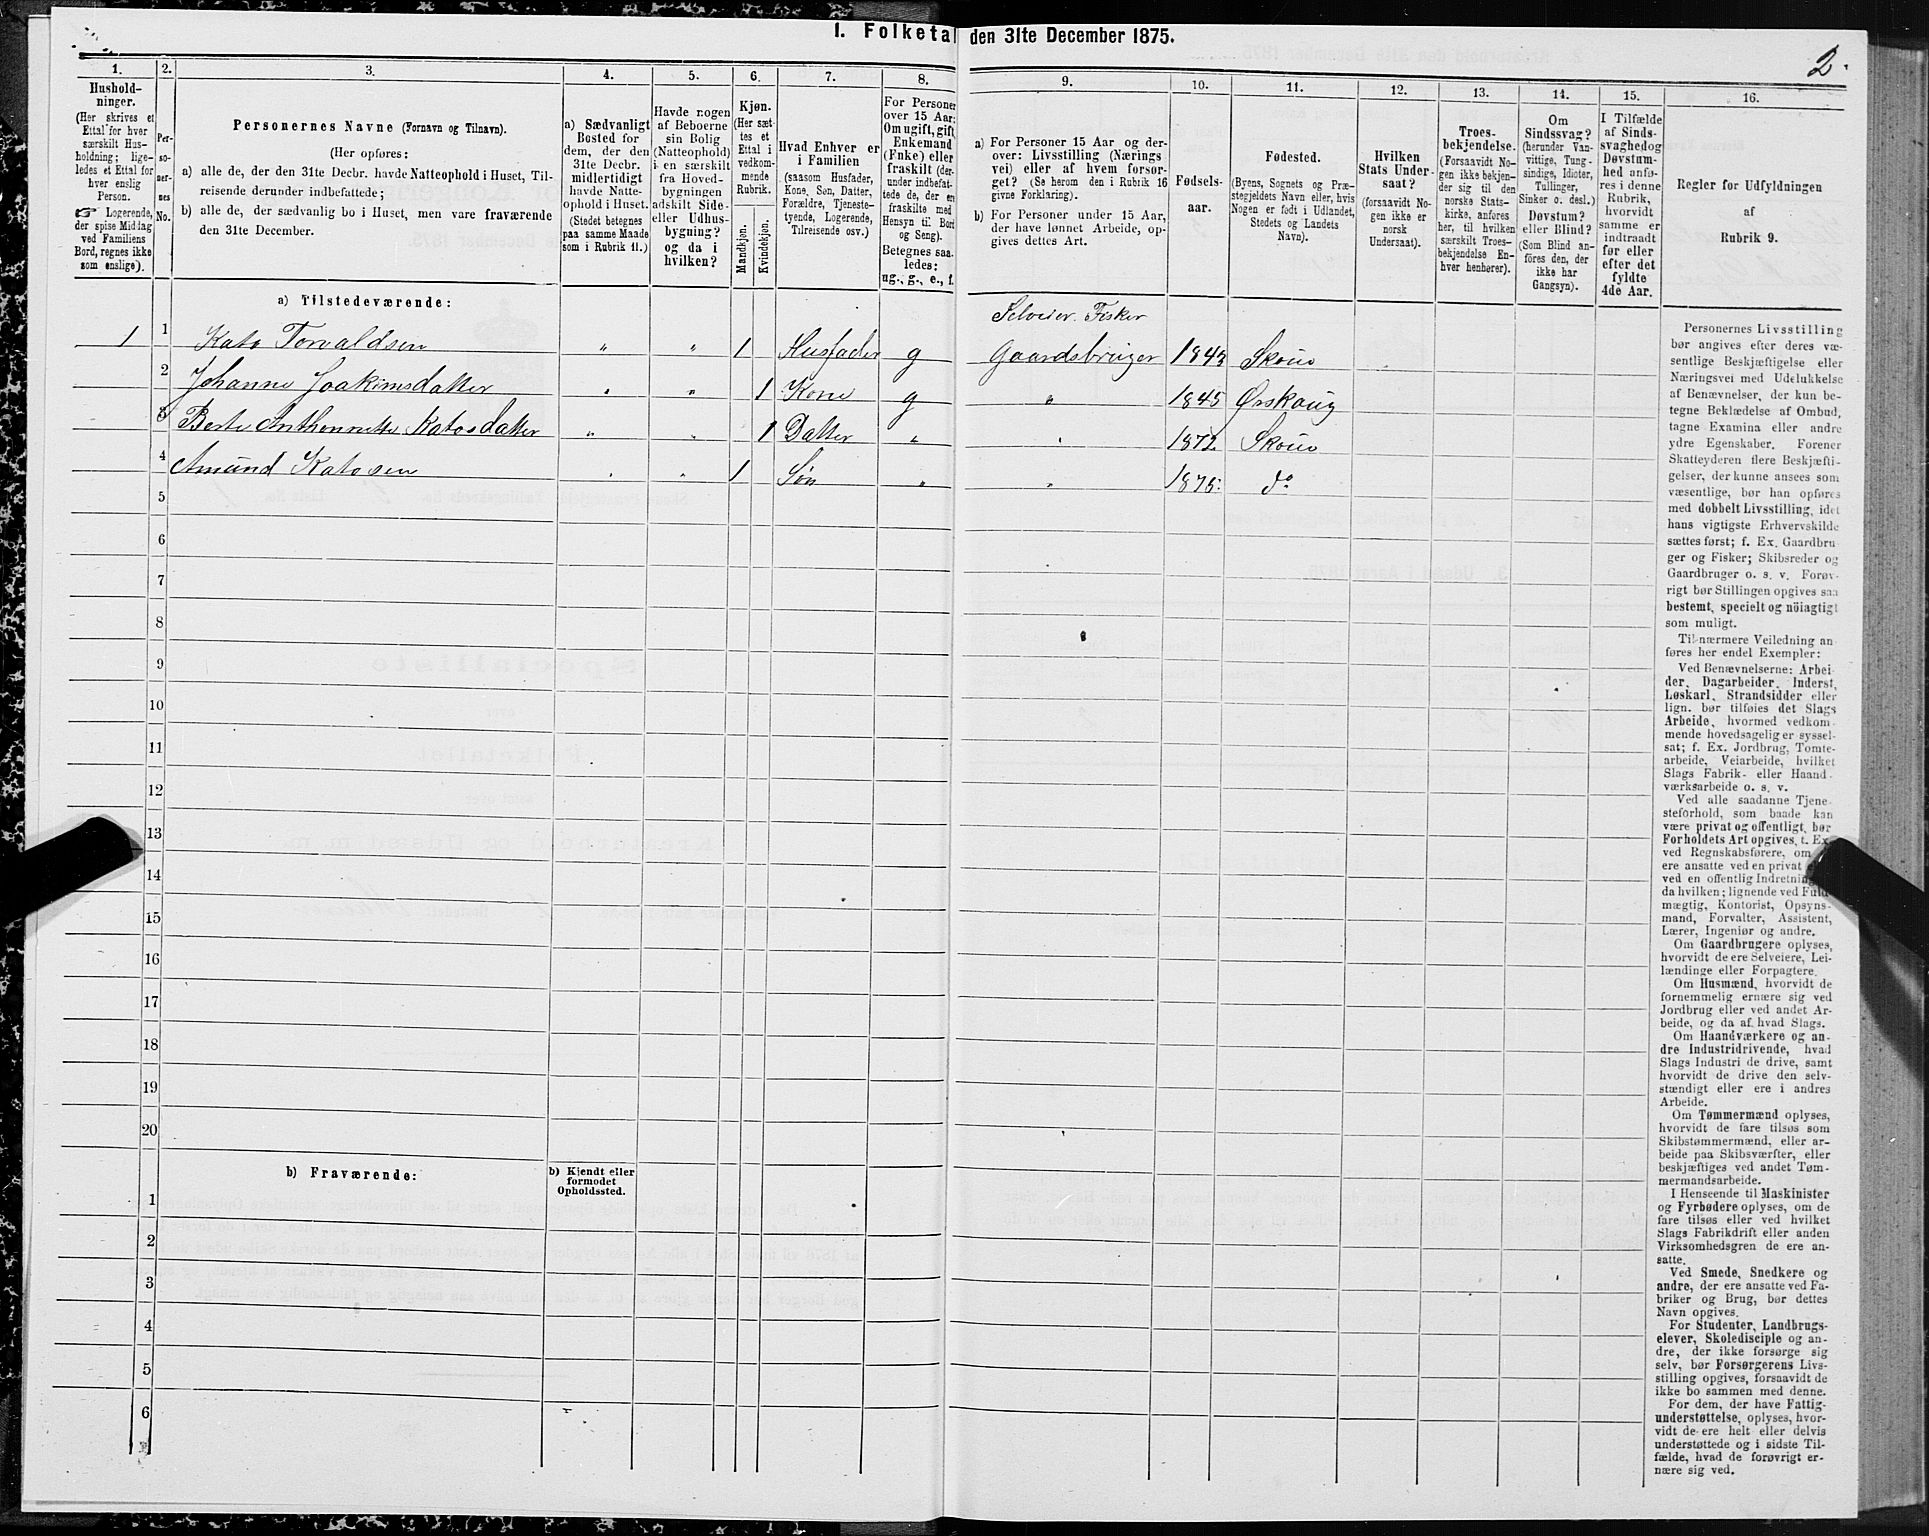 I. Folketal den 31te December 1875.
2.
1.
Hushold-
ninger.
(Her skrives et
Ettal for hver
særskilt Hus-
holdning; lige-
ledes et Ettal for
hver enslig
Person.
Logerende,
der spise Middag
ved Familiens
Bord, regnes ikke
som enslige).
2.
Per-
so-
ner-
nes
No.
3.
Personernes Navne (Fornavn og Tilnavn).
(Her opføres:
a) alle de, der den 31te Decbr. havde Natteophold i Huset, Til-
reisende derunder indbefattede;
b) alle de, der sædvanlig bo i Huset, men vare fraværende
den 31te December.
4.
a) Sædvanligt
Bosted for
dem, der den
31te Decbr.
midlertidigt
havde Natte-
ophold i Huset.
(Stedet betegnes
paa samme Maade
som i Rubrik 11.)
5.
Havde nogen
af Beboerne
sin Bolig
(Natteophold)
i en særskilt
fra Hoved-
bygningen
adskilt Side-
eller Udhus-
bygning?
og da i
hvilken?
6.
Kjøn.
(Her sæt-
tes et
Ettal i
vedkom-
mende
Rubrik.
Mandkjøn.
Kvindekjøn.
7.
Hvad Enhver er
i Familien
(saasom Husfader,
Kone, Søn, Datter,
Forældre, Tjeneste-
tyende, Logerende,
Tilreisende osv.)
8.
For Personer
over 15 Aar:
Om ugift, gift,
Enkemand
(Enke) eller
fraskilt (der-
under indbefat-
tede de, der ere
fraskilte med
Hensyn til Bord
og Seng).
Betegnes saa-
ledes:
ug., g., e., f.
9.
a) For Personer 15 Aar og der-
over: Livsstilling (Nærings
vei) eller af hvem forsør-
get? (Se herom den i Rubrik 16
givne Forklaring).
b) For Personer under 15 Aar,
der have lønnet Arbeide, op-
gives dettes Art.
10.
Fødsels-
aar.
11.
Fødested.
(Byens, Sognets og Præ-
stegjeldets Navn eller, hvis
Nogen er født i Udlandet,
Stedets og Landets
Navn).
12.
Hvilken
Stats Under-
saat?
(forsaavidt No-
gen ikke er
norsk
Undersaat).
13.
Troes-
bekjendelse.
(Forsaavidt No-
gen ikke bekjen-
der sig til den
norske Stats-
kirke, anføres
her, til hvilken
særskilt Troes-
bekjendelse En-
hver henhører).
14.
Om
Sindssvag?
(herunder Van-
vittige, Tung-
sindige, Idioter,
Tullinger,
Sinker o. desl.)
Døvstum?
eller Blind?
(Som Blind an-
føres den, der
ikke har
Gangsyn).
15.
I Tilfælde
af Sinds-
svaghedog
Døvstum-
hed anfø-
res i denne
Rubrik,
hvorvidt
samme er
indtraadt
før eller
efter det
fyldte
4de Aar.
16.
Regler for Udfyldningen
af
Rubrik 9.
a) Tilstedeværende:
1 1 Kato Torvaldsen " " 1 Husfader g Selveier. Fisker Gaardsbruger 1843 Skoue
2 Johanne Joakimsdatter " " 1 Kone g " 1845 Ørskoug
3 Berte Anthonnette Katosdatter " " 1 Datter " " 1872 Skoue
4 Amund Katosen " " 1 Søn " " 1875. do
5
6
7
8
9
10
11
12
13
14
15
16
17
18
19
20
b) Fraværende:
b) Kjendt eller
formodet
Opholdssted.
1
2
3
4
5
6
Personernes Livsstilling
bør angives efter deres væ-
sentlige Beskjæftigelse eller
Næringsvei med Udelukkelse
af Benævnelser, der kun be-
tegne Beklædelse af Ombud,
tagne Examina eller andre
ydre Egenskaber. Forener
Skatteyderen flere Beskjæfti-
gelser, der kunne ansees som
væsentlige, bør han opføres
med dobbelt Livsstilling, idet
hans vigtigste Erhvervskilde
sættes først; f. Ex. Gaardbru-
ger og Fisker; Skibsreder og
Gaardbruger o. s. v. Forøv-
rigt bør Stillingen opgives saa
bestemt, specielt og nöiagtigt
som muligt.
Til nærmere Veiledning an-
føres her endel Exempler:
Ved Benævnelserne: Arbei-
der, Dagarbeider, Inderst,
Løskarl, Strandsidder eller
lign. bør tilføies det Slags
Arbeide, hvormed vedkom-
mende hovedsagelig er syssel-
sat; f. Ex. Jordbrug, Tomte-
arbeide, Veiarbeide, hvilket
Slags Fabrik- eller Haand-
værksarbeide o. s. v.
Ved alle saadanne Tjene-
steforhold, som baade kan
være privat og offentligt, bør
Forholdets Art opgives, t. Ex.
ved Regnskabsførere, om
ere ansatte ved en privat
ved en offentlig Indretning
da hvilken; lignende ved Fuld-
mægtig, Kontorist, Opsyns-
mand, Forvalter, Assistent,
Lærer, Ingeniør og andre.
Om Gaardbrugere oplyses,
hvorvidt de ere Selveiere, Lei-
lændinge eller Forpagtere.
Om Husmænd, hvorvidt de
fornemmelig ernære sig ved
Jordbrug eller ved andet Ar-
beide, og da af hvad Slags.
Om Haandværkere og an-
dre Industridrivende, hvad
Slags Industri de drive, samt
hvorvidt de drive den selv-
stændigt eller ere i andres
Arbeide.
Om Tømmermænd oplyses,
hvorvidt de fare tilsøs som
Skibstømmermænd, eller ar-
beide paa Skibsværfter, eller
beskjæftiges ved andet Tøm-
mermandsarbeide.
I Henseende til Maskinister
og Fyrbødere oplyses, om de
fare tilsøs eller ved hvilket
Slags Fabrikdrift eller anden
Virksomhedsgren de ere an-
satte.
Ved Smede, Snedkere og
andre, der ere ansatte ved Fa-
briker og Brug, bør dettes
Navn opgives.
For Studenter, Landbrugs-
elever, Skoledisciple og an-
dre, der ikke forsørge sig
selv, bør Forsørgerens Livs-
stilling opgives, forsaavidt de
ikke bo sammen med denne.
For dem, der have Fattig-
understøttelse, oplyses, hvor-
vidt de ere helt eller delvis
understøttede og i sidste Til-
fælde, hvad de forøvrigt er-
nære sig ved.